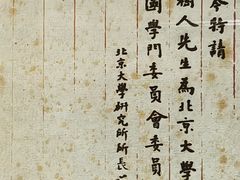 今特請
樹人先生為北京大學
國學門委員會委員
北京大學研究所所長